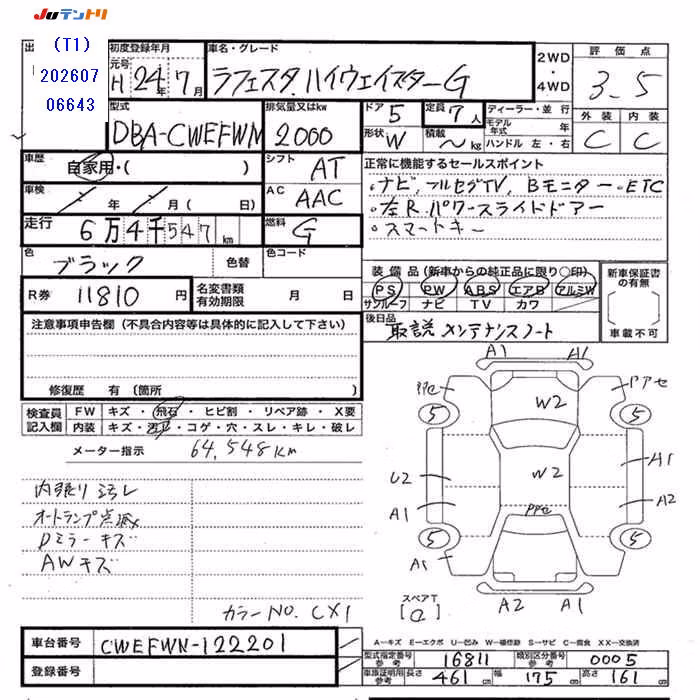 JUテントリ
(T1)
202607
06643
初度登録年月
元号
H 24年 7月
車名・グレード
ラフェスタ ハイウェイスターG
2WD
・
4WD
評価点
3.5
型式
DBA-CWEFWN
排気量又はkw
2000
ドア 5
形状 W
定員 7人
積載 〜 kg
ディーラー・並行
モデル年式 年
ハンドル 左・右
外装 内装
C C
車歴
自家用・( )
シフト AT
車検 年 月 ( 日)
AC AAC
走行 6万4千547km
燃料 G
色 ブラック 色替
色コード
正常に機能するセールスポイント
・ナビ, フルセグTV, Bモニター・ETC
・左R.パワースライドドアー
・スマートキー
装備品(新車からの純正品に限り○印)
PS PW ABS エアB アルミW
サンルーフ ナビ TV カワ
新車保証書の有無
車載不可
R券 11810円
名変書類有効期限 月 日
後日品 取説 メンテナンスノート
注意事項申告欄(不具合内容等は具体的に記入して下さい)
修復歴 有(箇所
検査員記入欄
FW キズ・飛石・ヒビ割・リペア跡・X要
内装 キズ・汚れ・コゲ・穴・スレ・キレ・破レ
メーター指示 64,548km
内張り汚レ
オートランプ点滅
Dミラーキズ
AWキズ
カラーNO. CX1
A1 A1
PPセ PPセ
W2
5 5
U2 W2 A1
A1 PPセ A2
5 5
A1
スペアT
[a]
A2 A1
A-キズ E-エクボ U-凹み W-補修跡 S-サビ C-腐食 XX-交換済
車台番号 CWEFWN-122201
登録番号
型式指定番号参考 16811
類別区分番号参考 0005
車庫証明用参考 長さ 461cm 幅 175cm 高さ 161cm